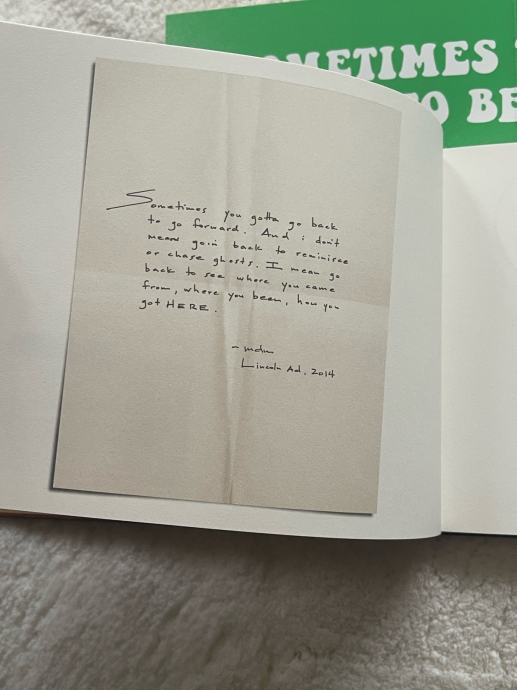 OMETIMES
TO BE
Sometimes you gotta go back
to go forward. And i don't
mean goin back to reminisce
or chase ghosts. I mean go
back to see where you came
from, where you been, how you
got HERE.
- mdm
Lincoln Ad, 2014